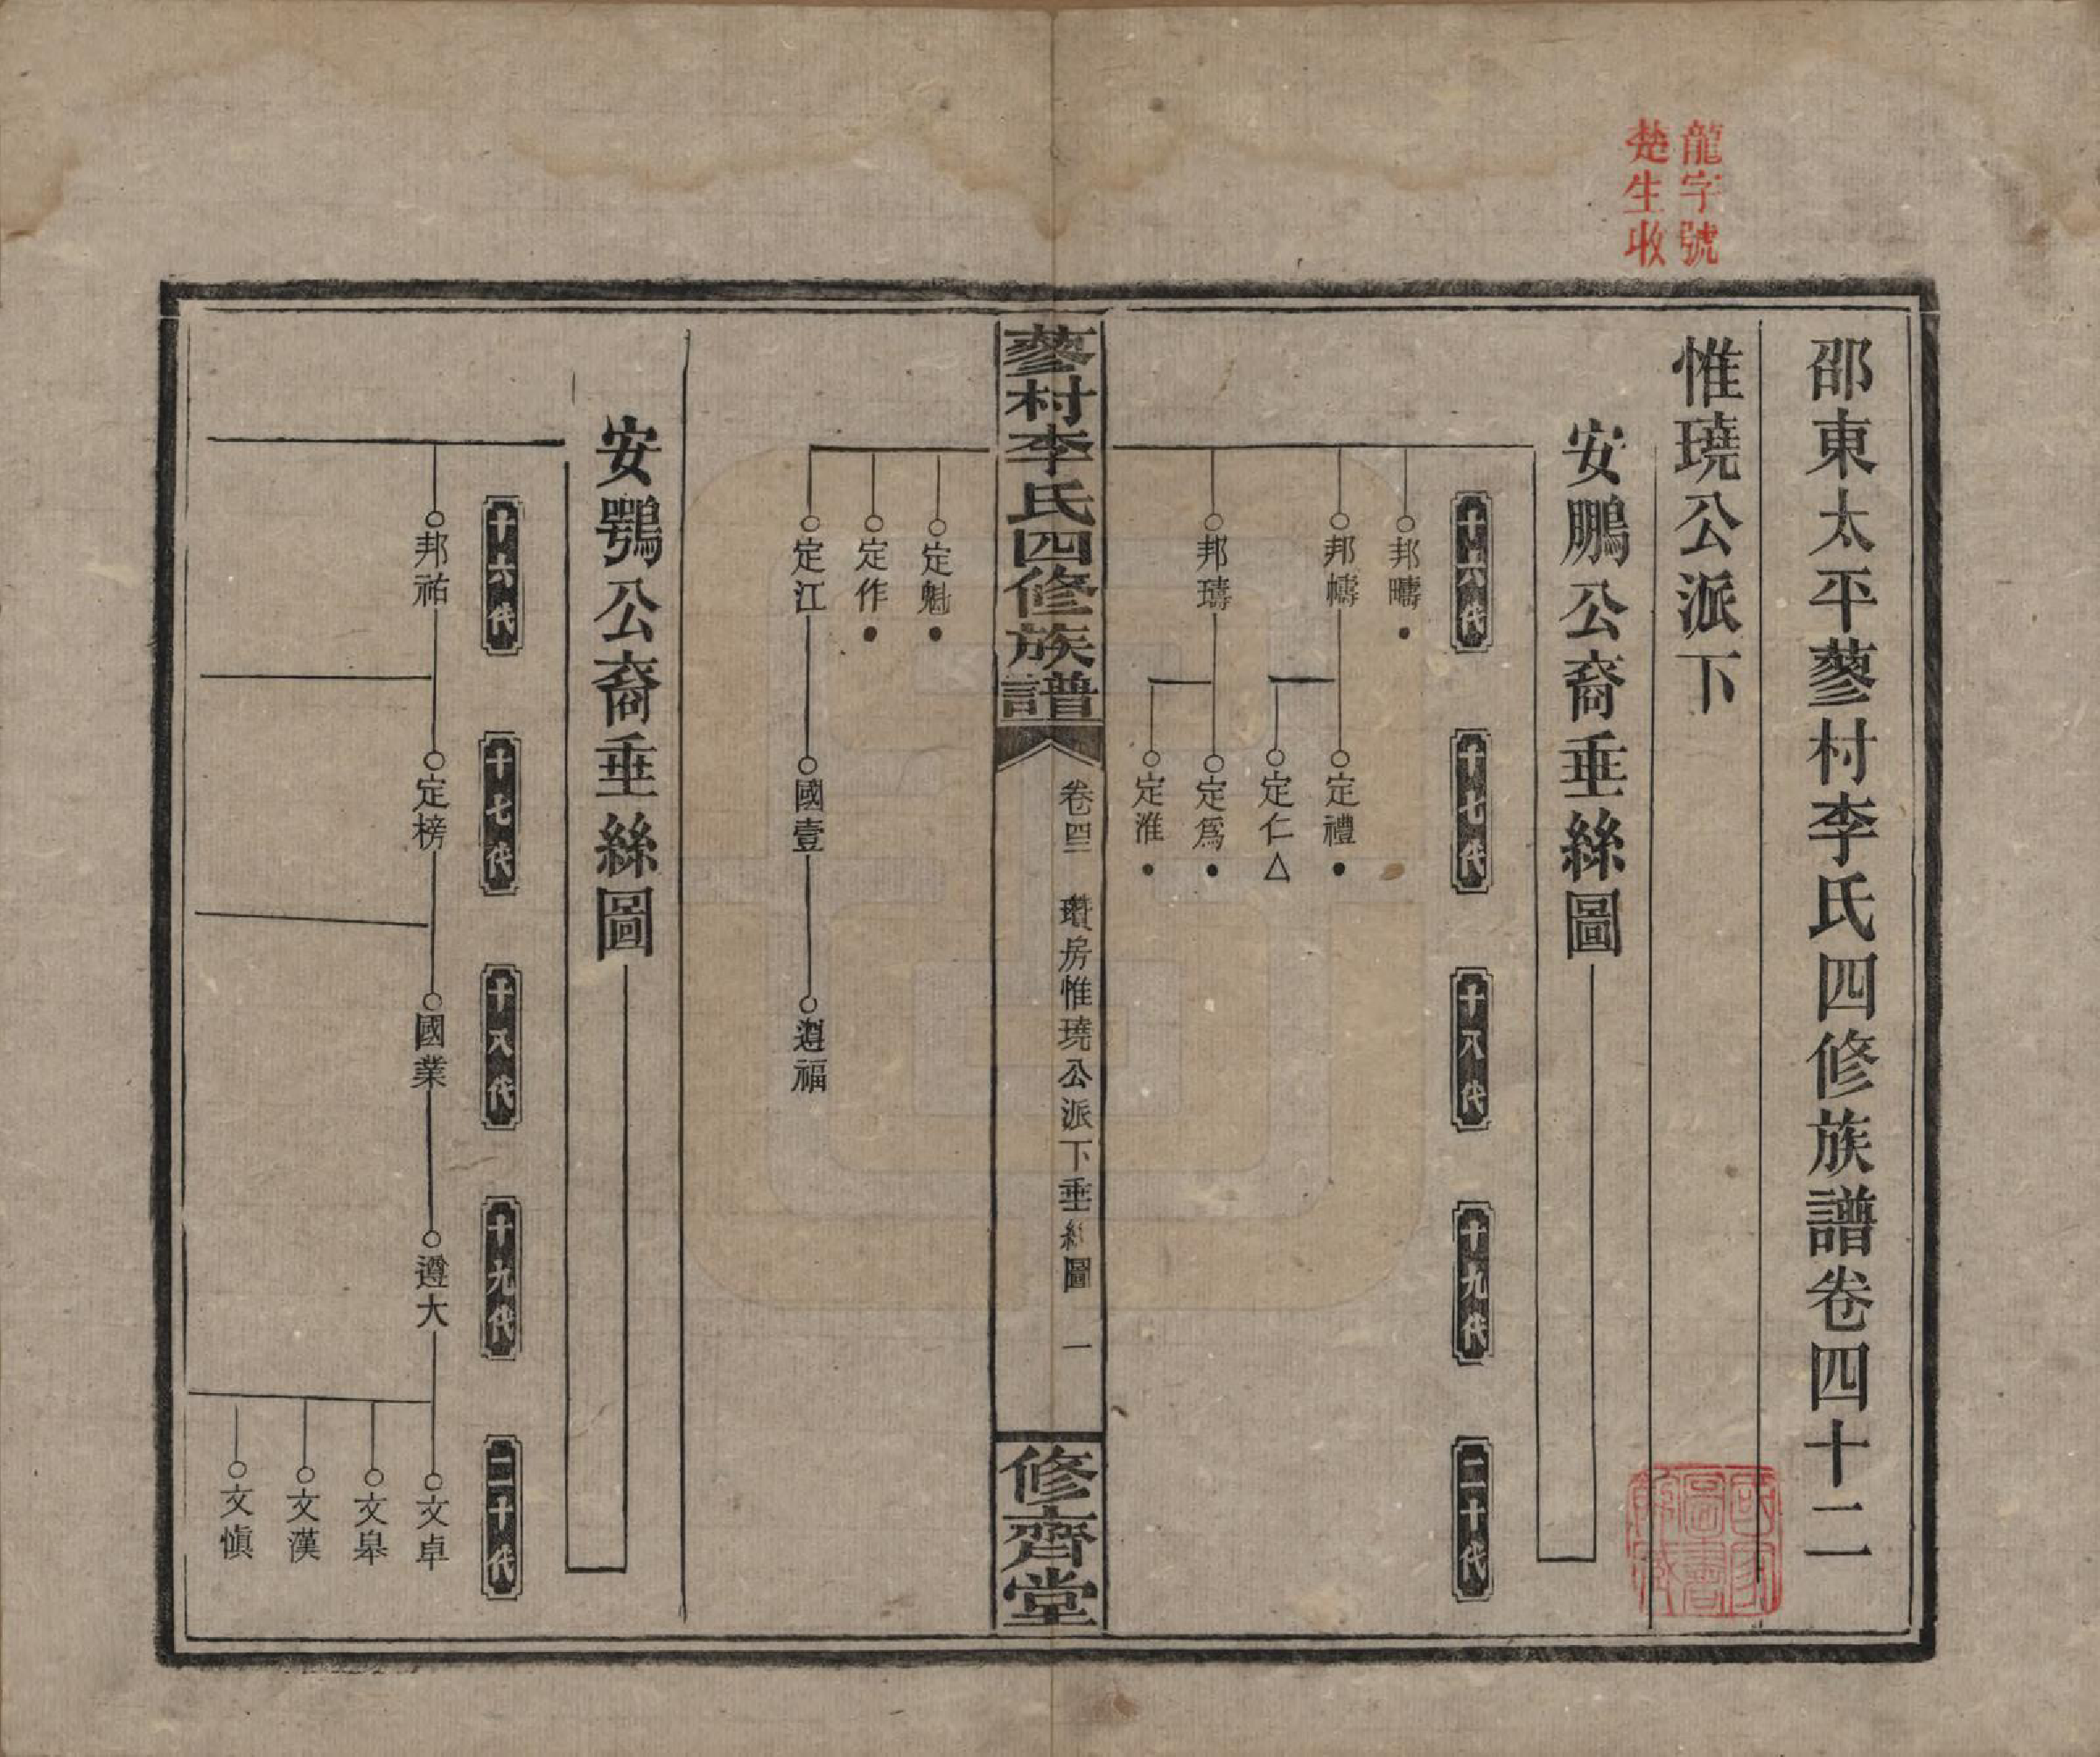 龍字號
楚生收
邵東太平蓼村李氏四修族譜卷四十二
惟璄公派下
安鵬公裔垂絲圖
十六代
十七代
十八代
十九代
二十代
邦疇
邦幬
定禮
定仁
邦璹
定爲
定淮
蓼村李氏四修族譜
卷四二
瓚房惟璄公派下垂絲圖
一
修齊堂
定魁
定作
定江
國壹
遵福
安鶚公裔垂絲圖
十六代
十七代
十八代
十九代
二十代
邦祐
定榜
國業
遵大
文卓
文皋
文漢
文愼
國家圖書館藏